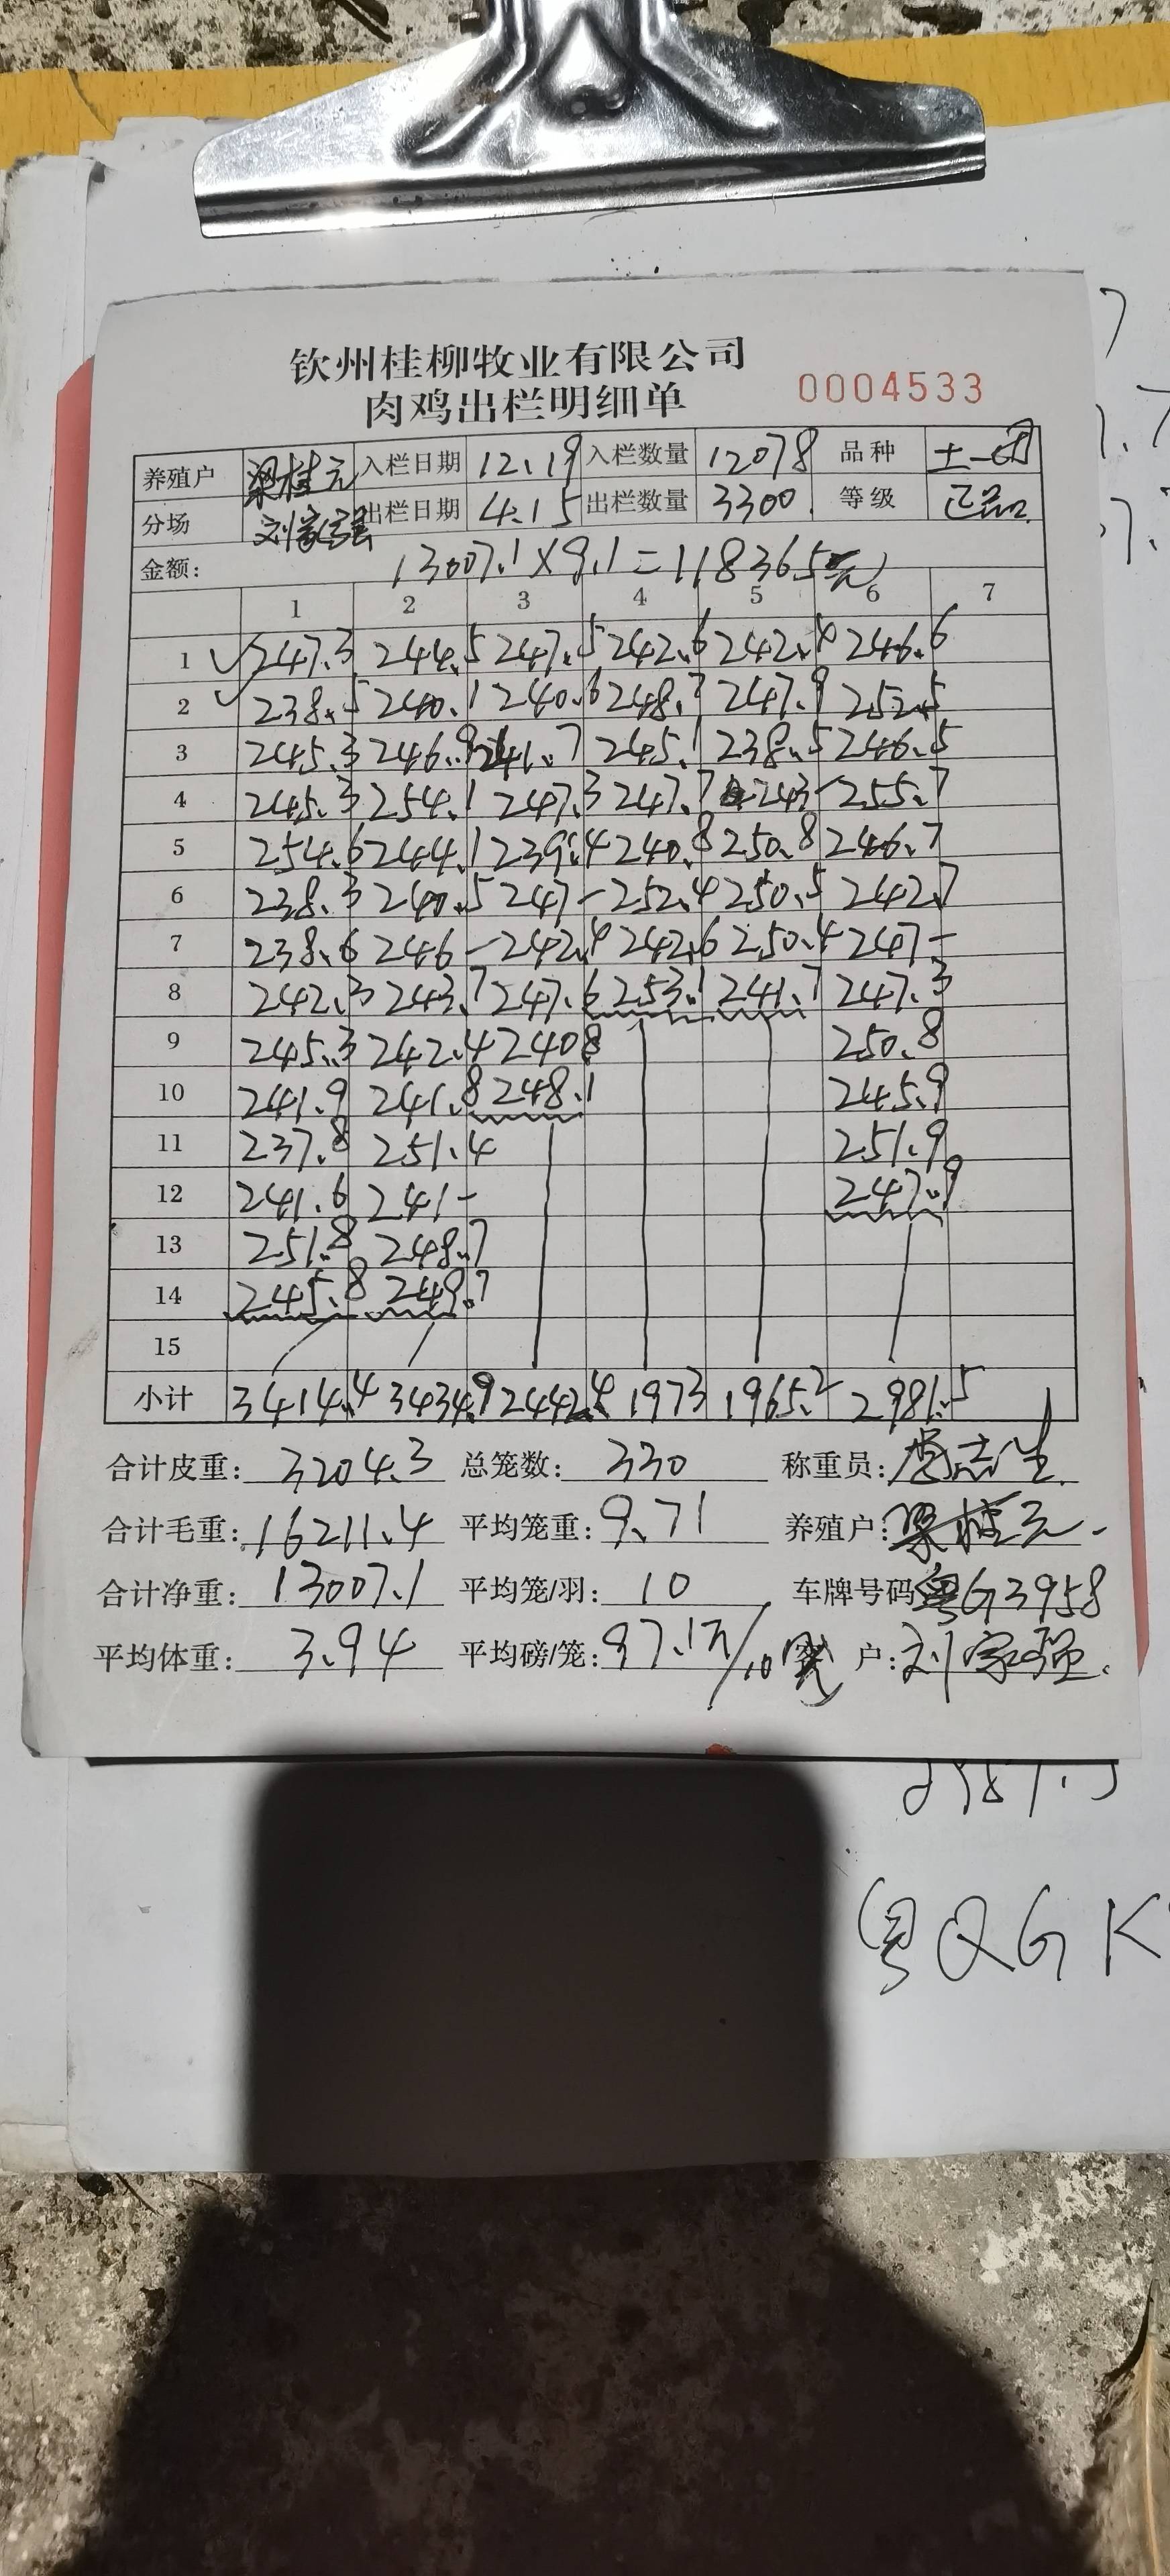 钦州桂柳牧业有限公司
肉鸡出栏明细单 0004533
养殖户 梁桂元 入栏日期 12.19 入栏数量 12078 品种 土一
分场 刘家强 出栏日期 4.15 出栏数量 3300 等级 正品
金额: 13007.1×9.1=118365元
1 2 3 4 5 6 7
1 247.3 244.5 247.5 242.6 242.4 246.6
2 238.5 240.1 240.6 248.7 247.9 252.5
3 245.3 246.9 241.7 245.1 238.5 246.5
4 245.3 254.1 247.3 247.7 243- 255.7
5 254.6 244.1 239.4 240.8 250.8 246.7
6 238.3 240.5 247- 252.4 250.5 242.7
7 238.6 246- 242.4 242.6 250.4 247-
8 242.3 243.7 247.6 253.1 241.7 247.3
9 245.3 242.4 240.8 250.8
10 241.9 241.8 248.1 245.9
11 237.8 251.4 251.9
12 241.6 241- 247.9
13 251.8 248.7
14 245.8 249.7
15
小计 3414.4 3434.9 2442.4 1973 1965.2 2981.5
合计皮重: 3204.3 总笼数: 330 称重员: 志生
合计毛重: 16211.4 平均笼重: 9.71 养殖户: 梁桂元
合计净重: 13007.1 平均笼/羽: 10 车牌号码 粤G3958
平均体重: 3.94 平均磅/笼: 97.1斤/10 户: 刘家强
粤QGK